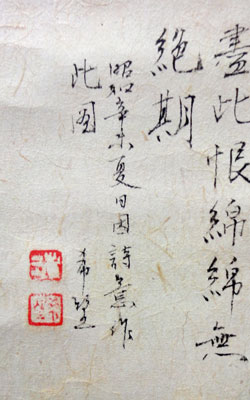 盡此恨綿綿無
絶期
昭和辛未夏日因詩意作
此图
希